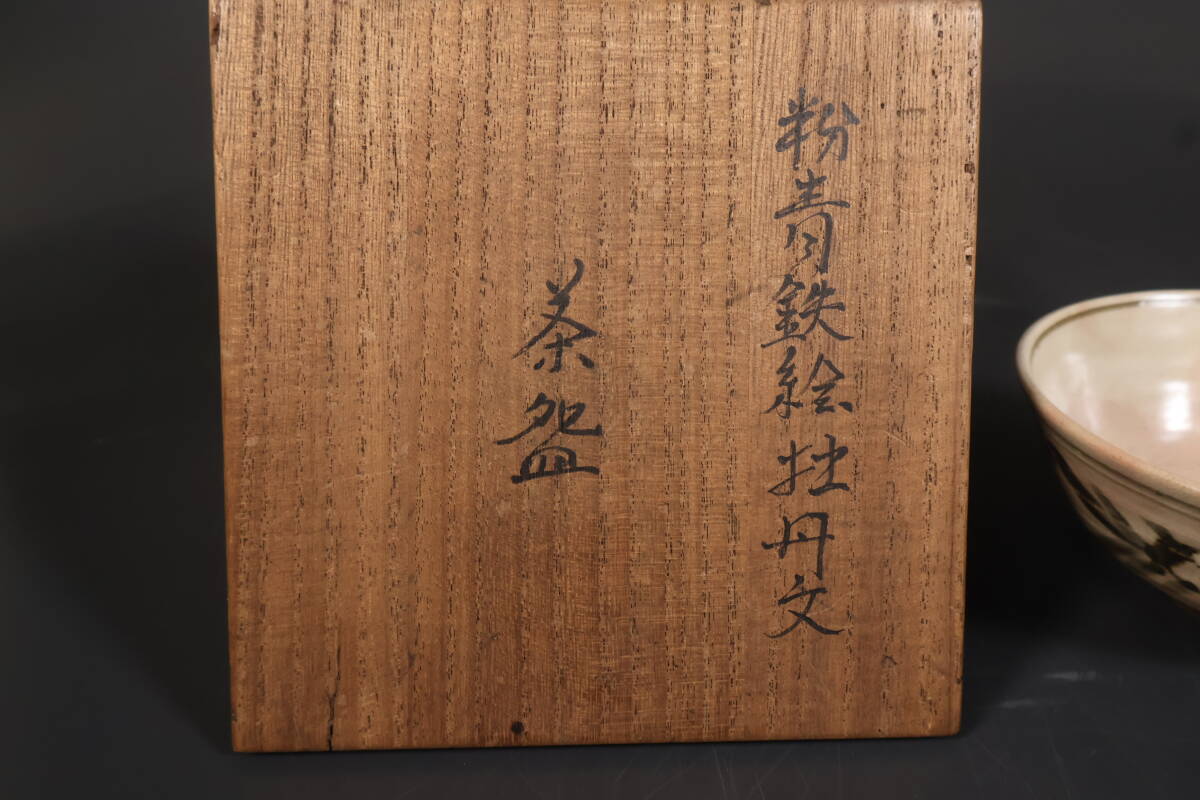 粉青鉄絵牡丹文
茶盌